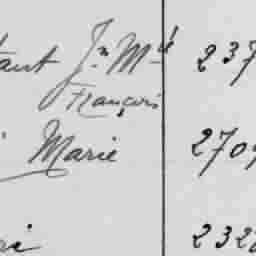 tant Jn Mié 237
François
Marie 270
232